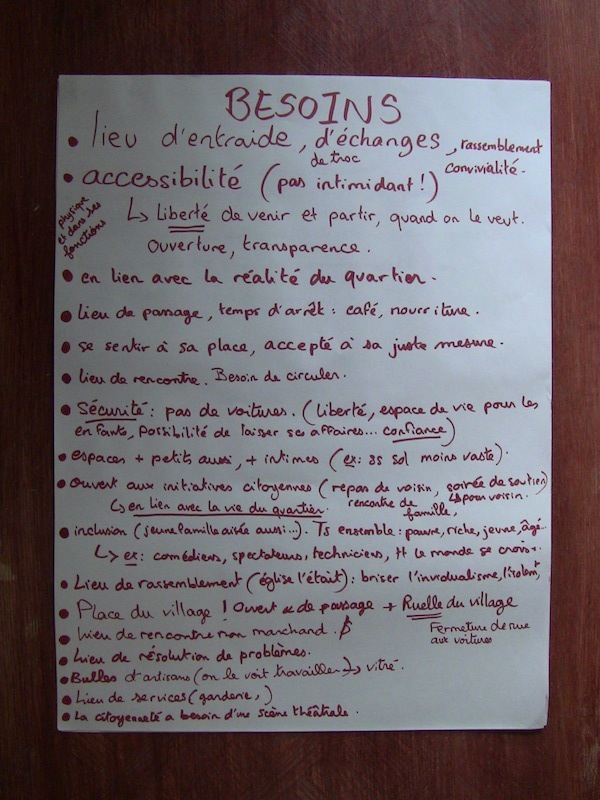 BESOINS
• lieu d'entraide, d'échanges, rassemblement
de troc convivialité.
• accessibilité (pas intimidant!)
physique
et dans ses
fonctions
↳ Liberté de venir et partir, quand on le veut.
Ouverture, transparence.
• en lien avec la réalité du quartier.
• lieu de passage, temps d'arrêt: café, nourriture.
• se sentir à sa place, accepté à sa juste mesure.
• lieu de rencontre. Besoin de circuler.
• Sécurité: pas de voitures. (liberté, espace de vie pour les
enfants, possibilité de laisser ses affaires... confiance)
• espaces + petits aussi, + intimes (ex: ss sol moins vaste).
• Ouvert aux initiatives citoyennes (repas de voisin, soirée de soutien)
↳ en lien avec la vie du quartier. rencontre de famille, ↳ pour voisin.
• inclusion (jeune famille aisée aussi...). Ts ensemble: pauvre, riche, jeune, âgé..
↳ ex: comédiens, spectateurs, techniciens, tt le monde se crois
• Lieu de rassemblement (église l'était): briser l'invidualisme,
• Place du village! Ouvert de passage + Ruelle du village
• Lieu de rencontre non marchand. $ Fermeture de rue
aux voitures
• Lieu de résolution de problèmes.
• Bulles d'artisans (on le voit travailler) → vitré.
• Lieu de services (garderie, )
• La citoyenneté a besoin d'une scène théâtrale.